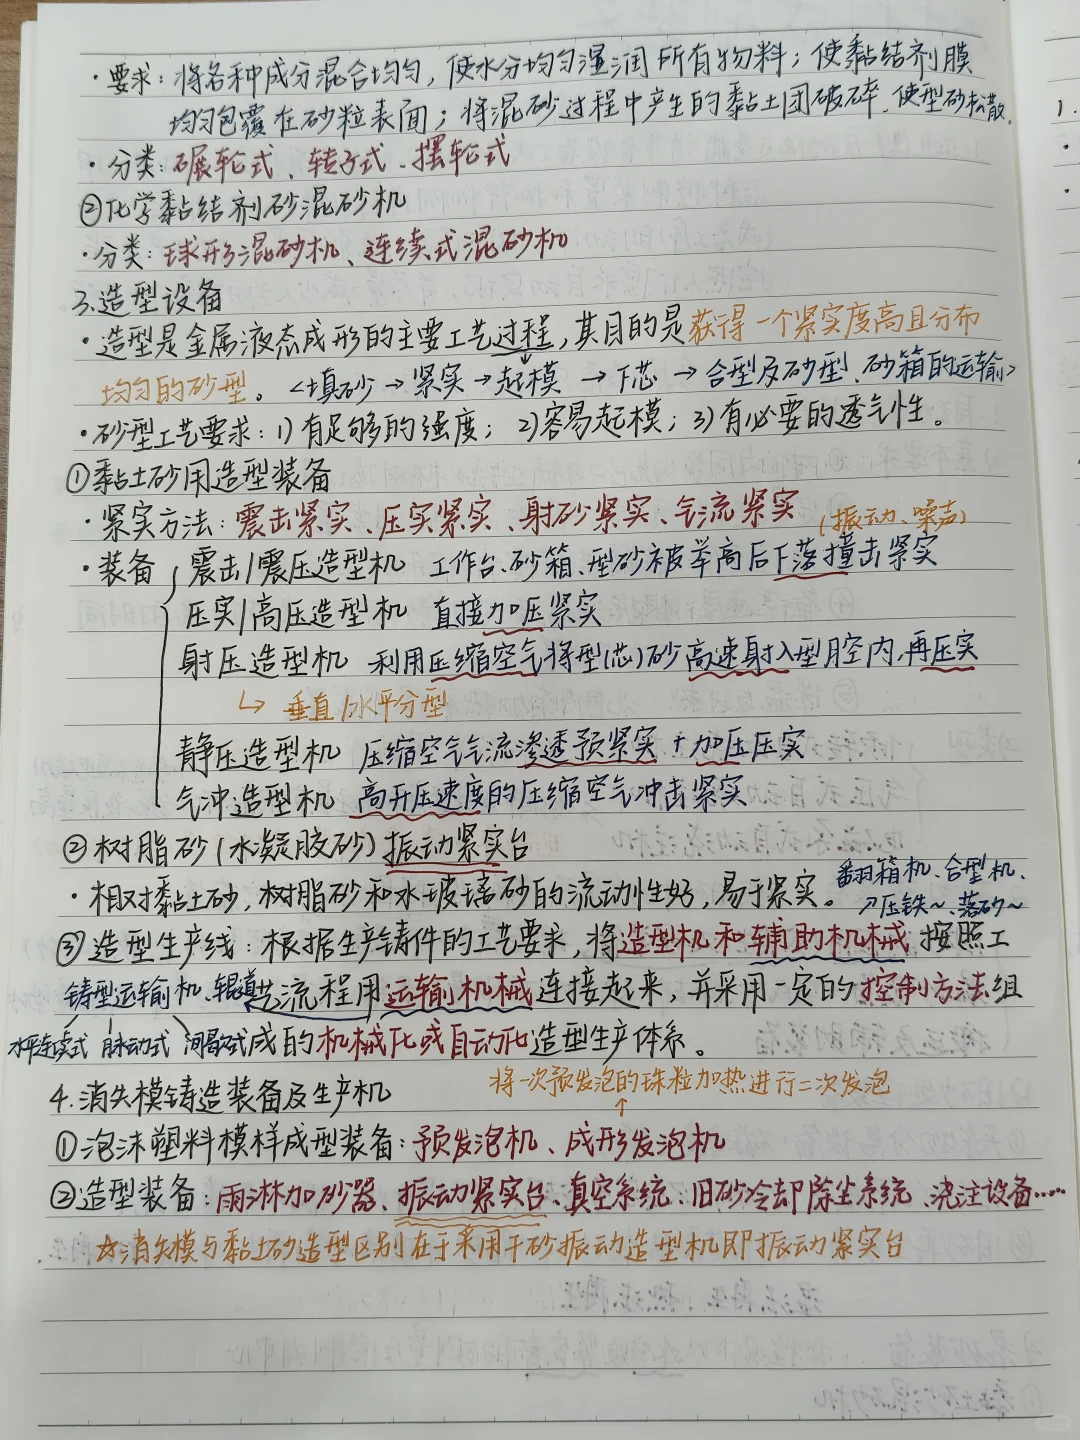 ·要求：将各种成分混合均匀，使水分均匀湿润所有物料；使黏结剂膜
均匀包覆在砂粒表面；将混砂过程中产生的黏土团破碎、使型砂松散。
·分类：碾轮式、转子式、摆轮式
②化学黏结剂砂混砂机
·分类：球形混砂机、连续式混砂机
3.造型设备
·造型是金属液态成形的主要工艺过程，其目的是获得一个紧实度高且分布
均匀的砂型。<填砂→紧实→起模→下芯→合型及砂型、砂箱的运输>
·砂型工艺要求：1)有足够的强度；2)容易起模；3)有必要的透气性。
①黏土砂用造型装备
·紧实方法：震击紧实、压实紧实、射砂紧实、气流紧实
(振动、噪声)
·装备 震击/震压造型机 工作台、砂箱、型砂被举高后下落撞击紧实
压实/高压造型机 直接加压紧实
射压造型机 利用压缩空气将型(芯)砂高速射入型腔内，再压实
↳ 垂直/水平分型
静压造型机 压缩空气气流渗透预紧实+加压压实
气冲造型机 高升压速度的压缩空气冲击紧实
②树脂砂(水凝胶砂)振动紧实台
·相对黏土砂，树脂砂和水玻璃砂的流动性好，易于紧实。
翻箱机、合型机、
↗压铁~、落砂~
③造型生产线：根据生产铸件的工艺要求，将造型机和辅助机械按照工
铸型运输机、辊道 艺流程用运输机械连接起来，并采用一定的控制方法组
水平连续式 脉动式 间歇式 成的机械化或自动化造型生产体系。
4.消失模铸造装备及生产机
将一次预发泡的珠粒加热进行二次发泡
↑
①泡沫塑料模样成型装备：预发泡机、成形发泡机
②造型装备：雨淋加砂器、振动紧实台、真空系统、旧砂冷却除尘系统、浇注设备……
☆消失模与黏土砂造型区别在于采用干砂振动造型机即振动紧实台
1.
·
·